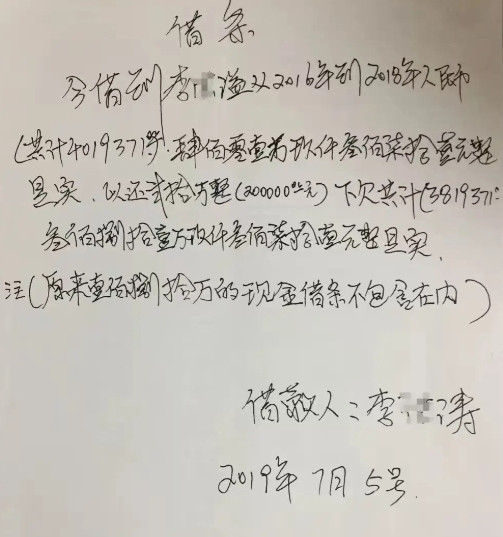 借条
今借到李 溢从2016年到2018年人民币
(共计4019371元.肆佰零壹万玖仟叁佰柒拾壹元整
是实.以还贰拾万整(200000元)下欠共计(3819371:
叁佰捌拾壹万玖仟叁佰柒拾壹元整是实.
注(原来壹佰捌拾万的现金借条不包含在内)
借款人:李 涛
2019年7月5号.